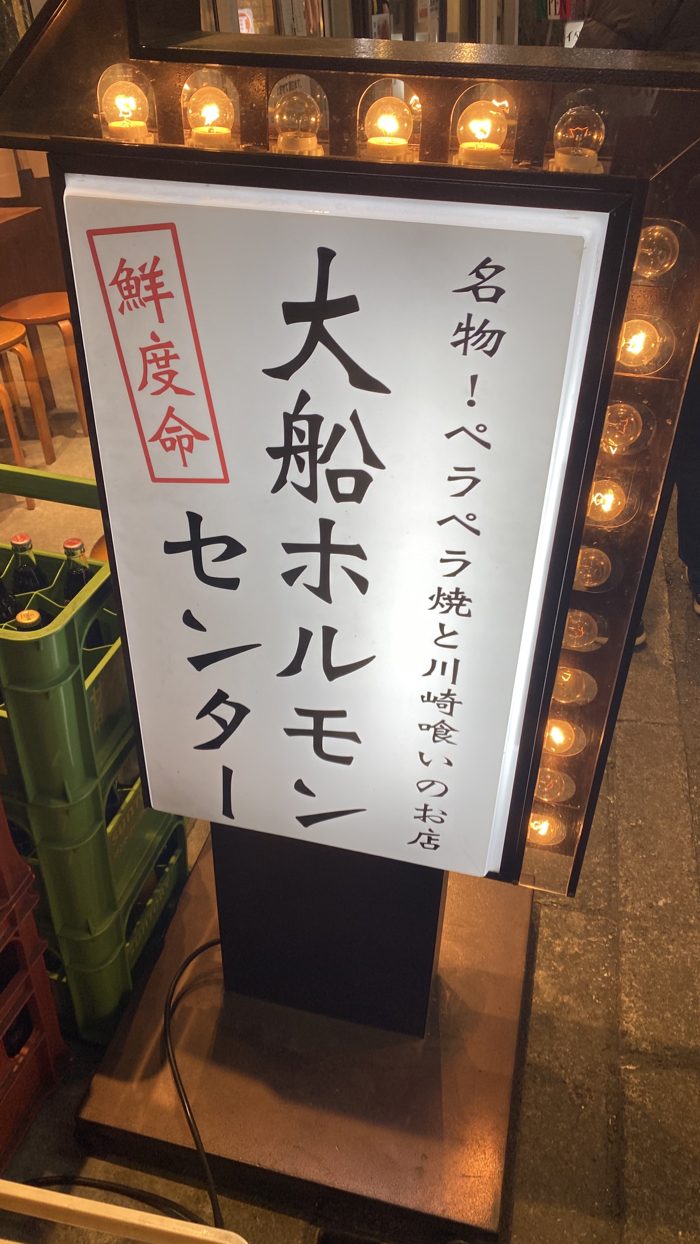 名物！ペラペラ焼と川崎喰いのお店
大船ホルモン
センター
鮮度命